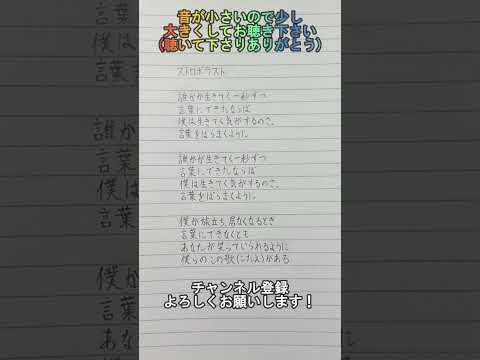 音が小さいので少し
大きくしてお聴き下さい
(聴いて下さりありがとう)
ストロボラスト
誰かが生きてく一秒ずつ
言葉にできたならば
僕は生きてく気がするのさ、
言葉をばらまくように
誰かが生きてく一秒ずつ
言葉にできたならば
僕は生きてく気がするのさ、
言葉をばらまくように
僕が旅立ち居なくなるとき
言葉にできなくとも
あなたが笑っていられるように
僕らのこの歌(こたえ)がある
チャンネル登録
よろしくお願いします!